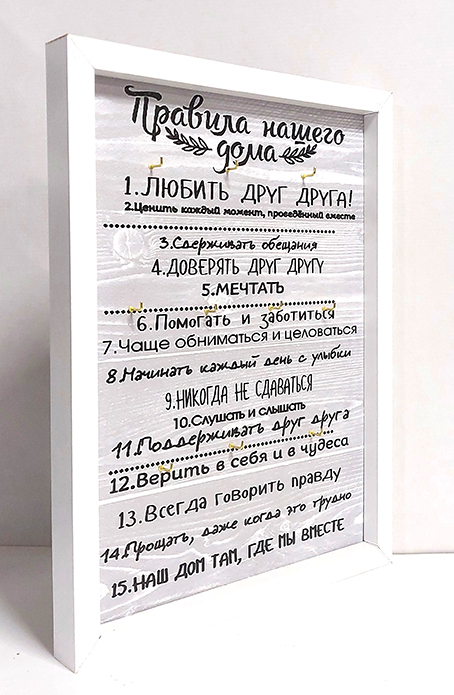 Правила нашего
дома
1.ЛЮБИТЬ ДРУГ ДРУГА!
2.Ценить каждый момент, проведённый вместе
3.Сдерживать обещания
4.ДОВЕРЯТЬ ДРУГ ДРУГУ
5.МЕЧТАТЬ
6.Помогать и заботиться
7.Чаще обниматься и целоваться
8.Начинать каждый день с улыбки
9.НИКОГДА НЕ СДАВАТЬСЯ
10.Слушать и слышать
11.Поддерживать друг друга
12.Верить в себя и в чудеса
13.Всегда говорить правду
14.Прощать, даже когда это трудно
15.НАШ ДОМ ТАМ, ГДЕ МЫ ВМЕСТЕ